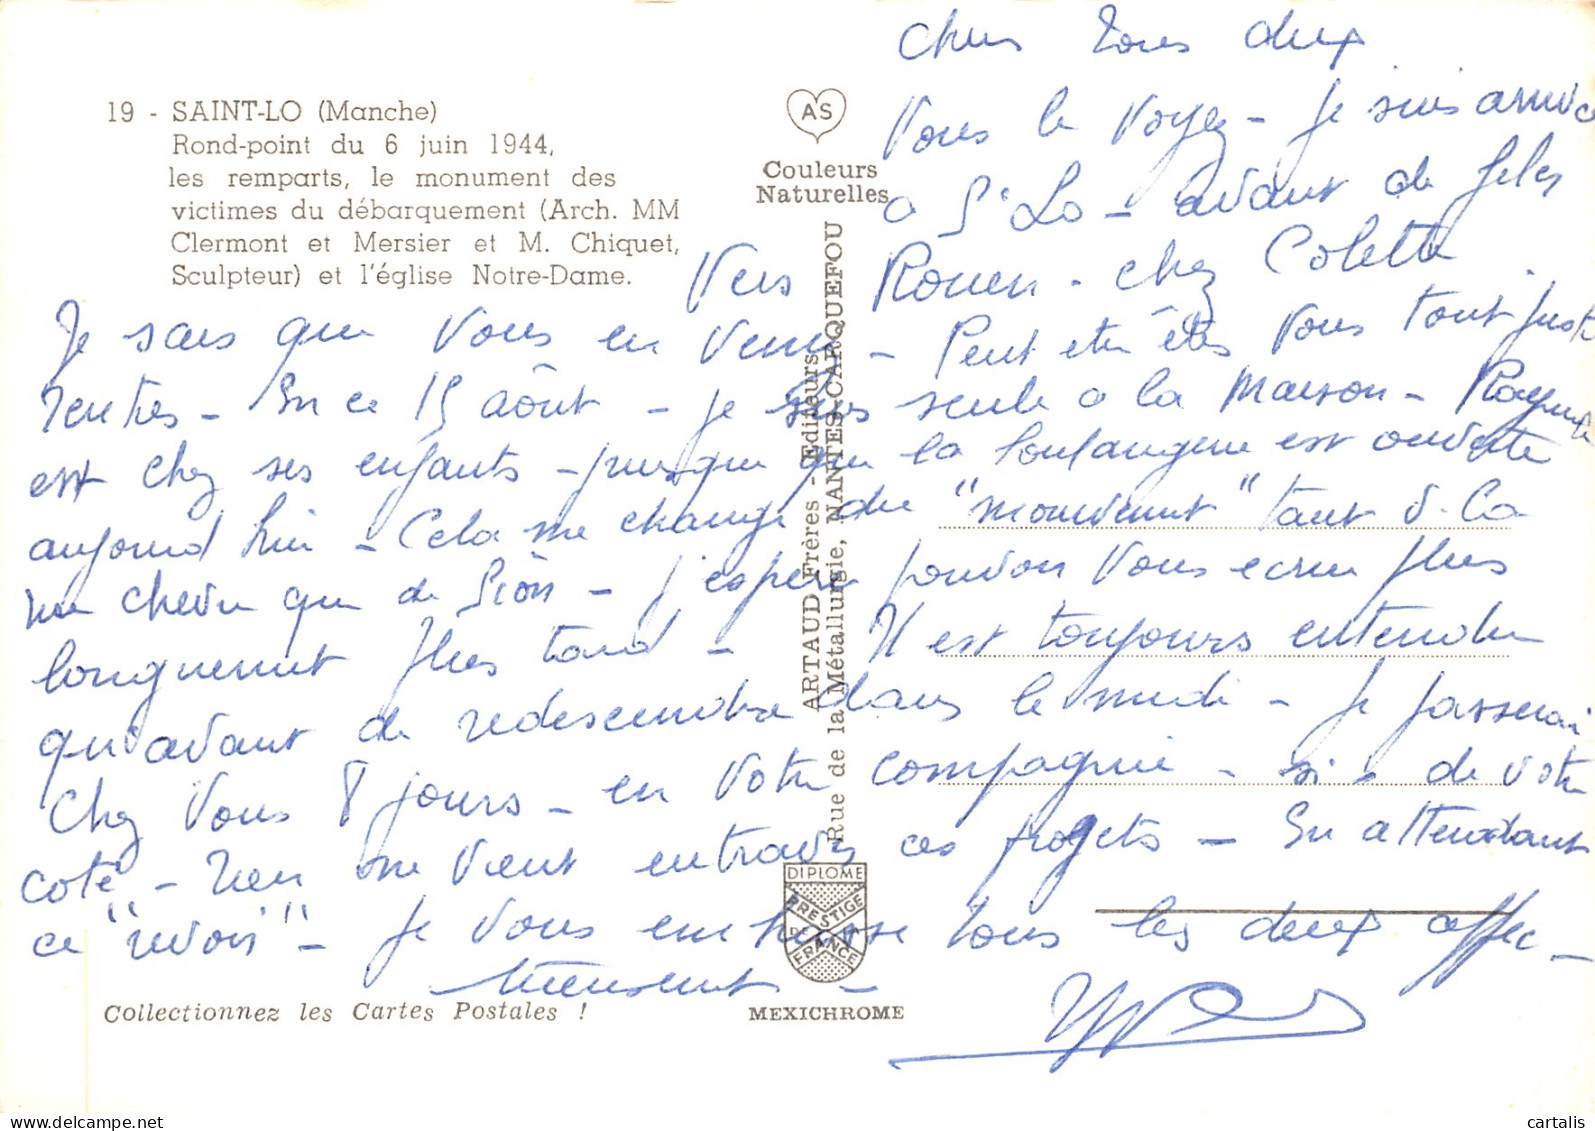 19 - SAINT-LO (Manche)
Rond-point du 6 juin 1944,
les remparts, le monument des
victimes du débarquement (Arch. MM
Clermont et Mersier et M. Chiquet,
Sculpteur) et l'église Notre-Dame.
AS
Couleurs
Naturelles
ARTAUD Frères - Editeurs
Rue de la Métallurgie, NANTES-CARQUEFOU
DIPLOME
PRESTIGE
DE
FRANCE
MEXICHROME
Collectionnez les Cartes Postales !
Chers tous deux
Vous le voyez - Je suis arrivée
a St Lo - avant de filer
Vers Rouen - chez Colette.
Je sais que vous en venez - Peut etre êtes vous tout juste
rentrés - En ce 15 août - je suis seule a la maison -
est chez ses enfants - puisque la boulangerie est ouverte
aujourd hui - Cela me change du "mouvement" tant d. La
que de - J'espère pouvoir vous ecrire plus
longuement plus tard - Il est toujours entendu
qu'avant de redescendre dans le midi - Je passerai
Chez vous 8 jours - en votre compagnie - si de votre
coté - rien ne vient entraver ces projets - En attendant
ce "revoir" - Je vous embrasse tous les deux affec -
tueusement -
cartalis